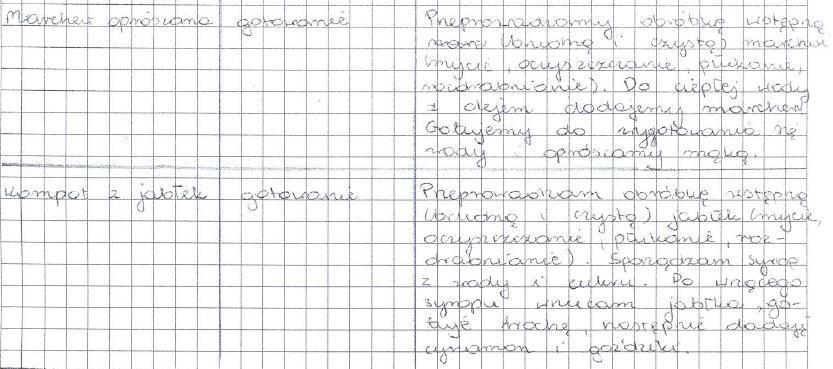 Marchew oprószana gotowanie Przeprowadzamy obróbkę wstępną
(brudną i czystą) marchwi
(mycie, oczyszczanie, płukanie,
rozdrabnianie). Do ciepłej wody
z olejem dodajemy marchew
Gotujemy do wygotowania się
wody i oprószamy mąką.
Kompot z jabłek gotowanie Przeprowadzam obróbkę wstępną
(brudną i czystą) jabłek (mycie,
oczyszczanie, płukanie, roz-
drabnianie). Sporządzam syrop
z wody i cukru. Do wrzącego
syropu wrzucam jabłka, go-
tuję trochę, następnie dodaję
cynamon i goździki.